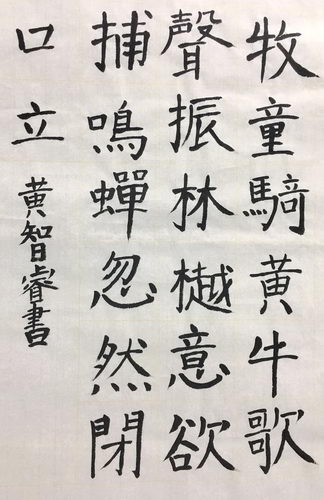 牧童騎黃牛歌
聲振林樾意欲
捕鳴蟬忽然閉
口立 黃智睿書